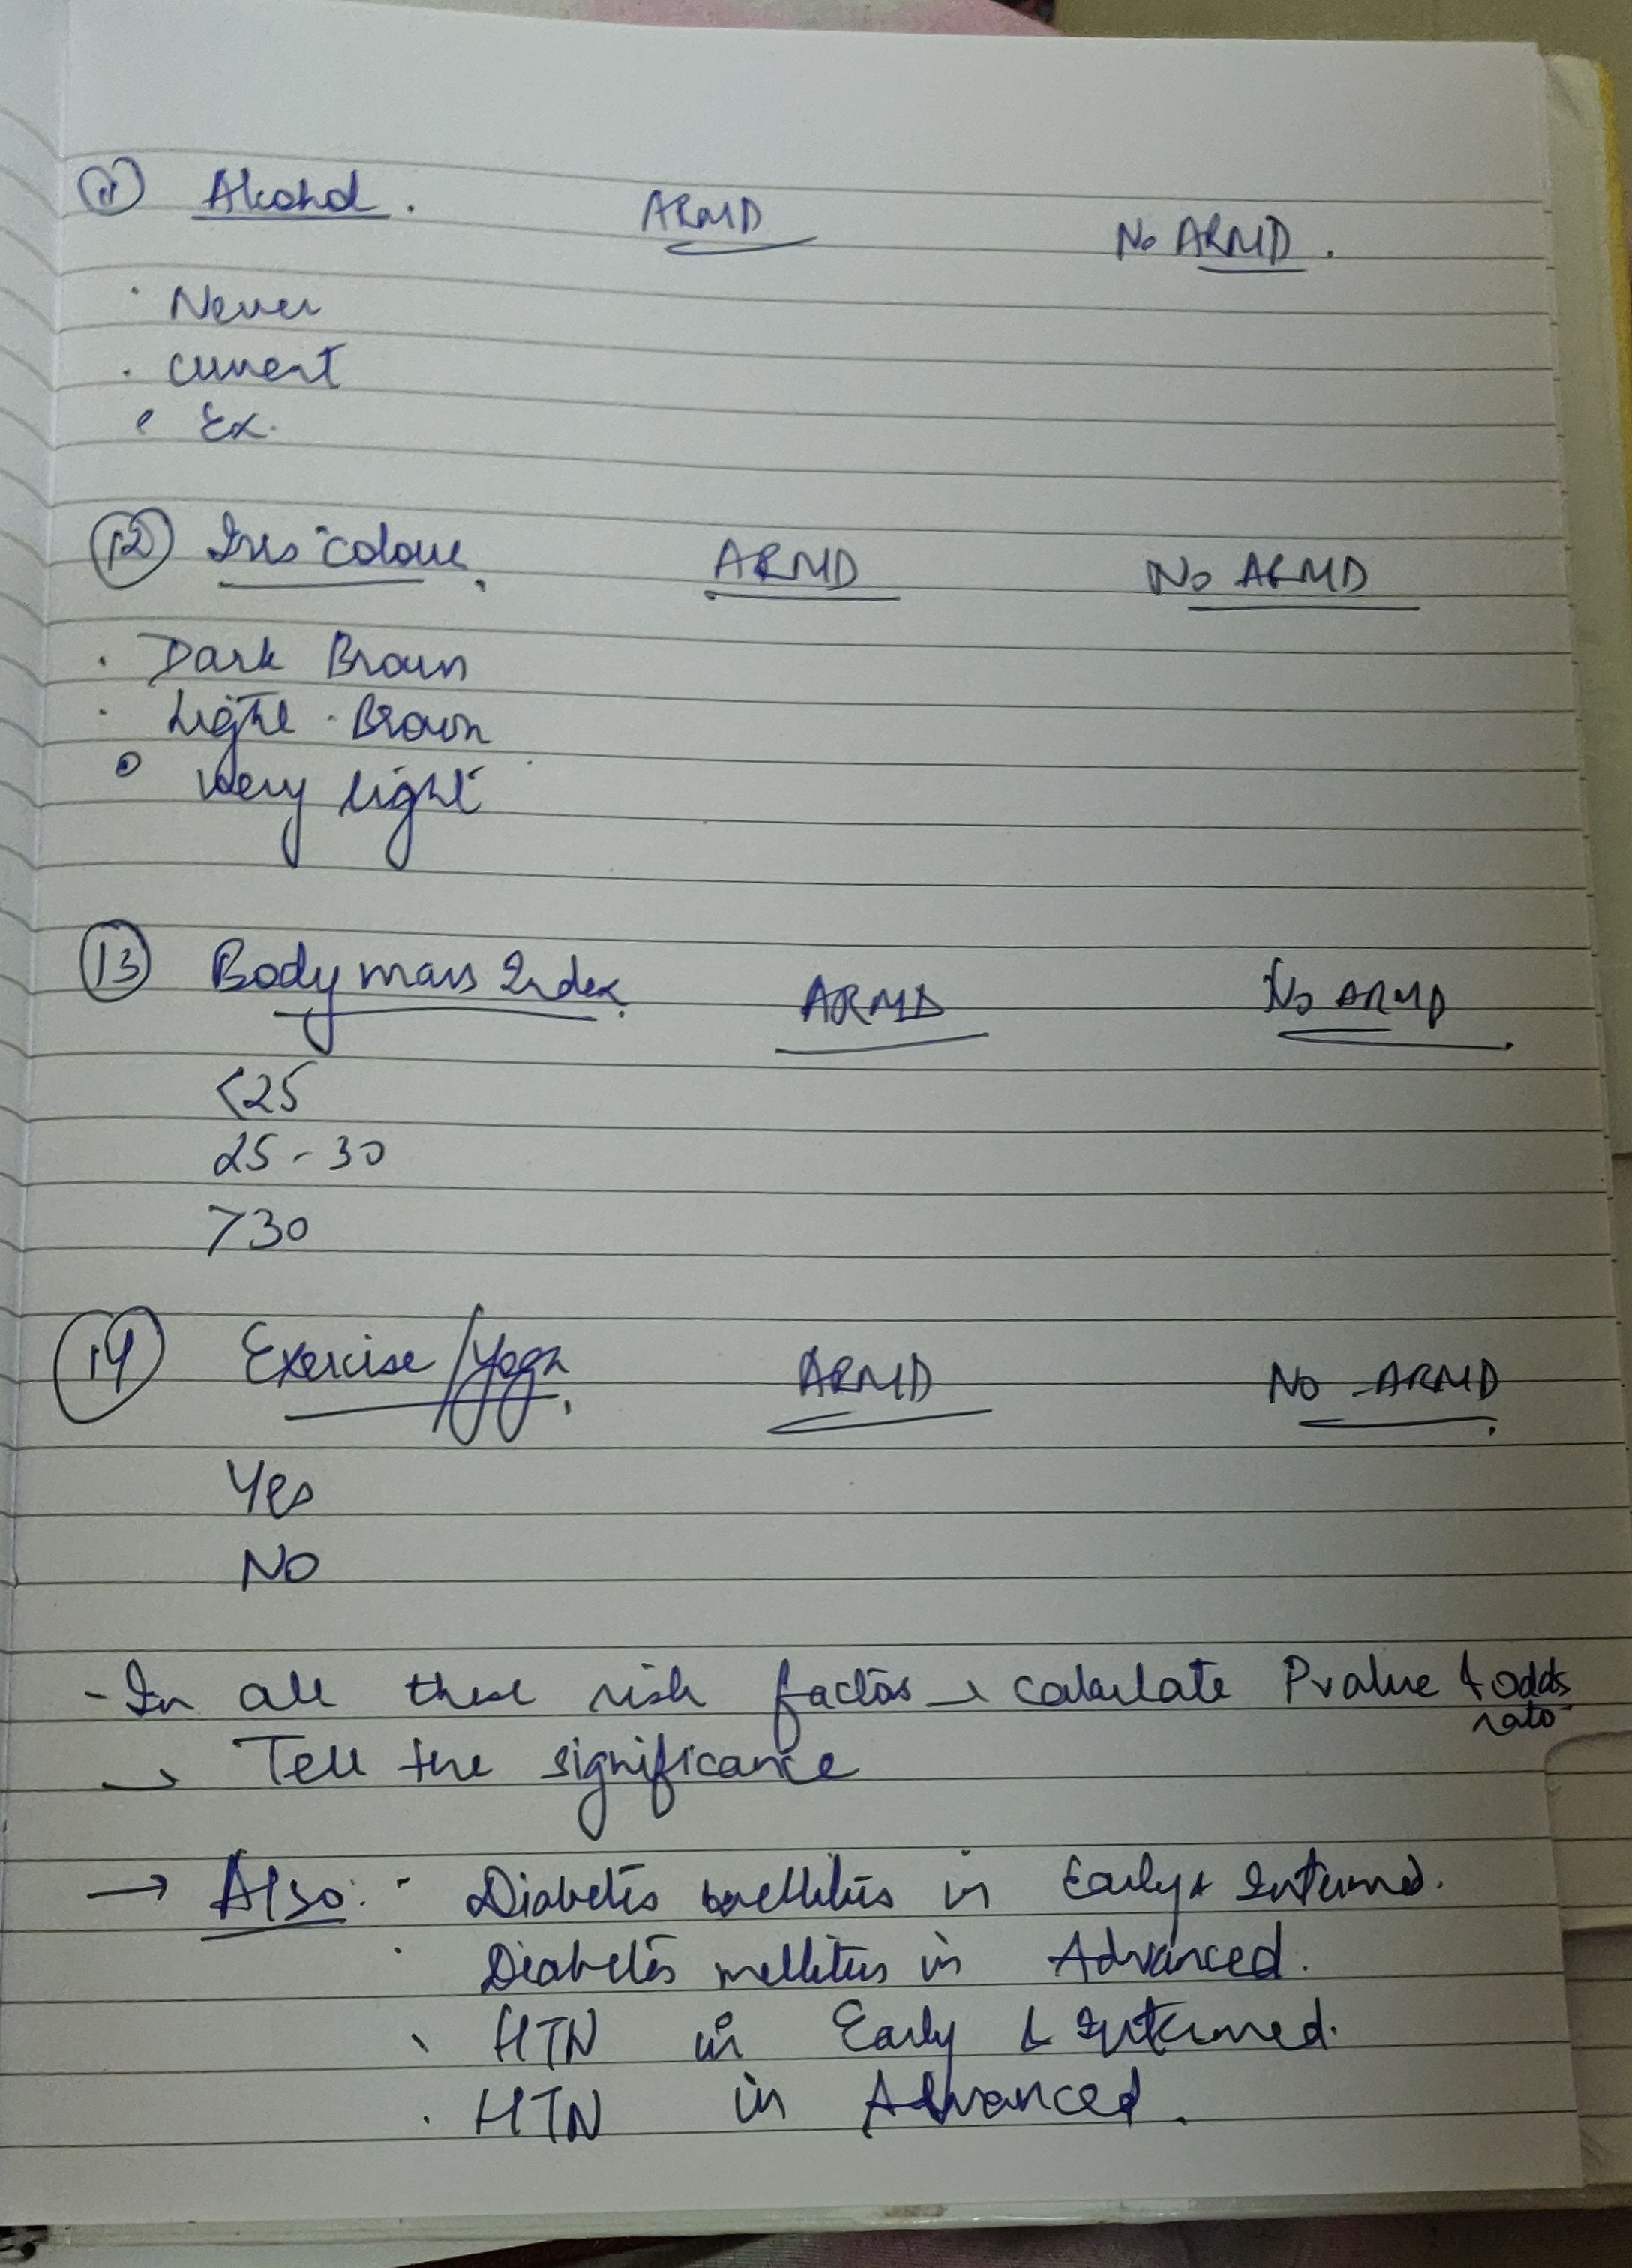 11 Alcohol. ARMD No ARMD.
· Never
· Current
· Ex.
12 Iris colour. ARMD No ARMD
· Dark Brown
· Light Brown
· Very light
13 Body mass Index. ARMD No ARMD.
<25
25-30
>30
14 Exercise/Yoga. ARMD No ARMD.
Yes
NO
- In all these risk factors → calculate P value & odds
ratio
→ Tell the significance
→ Also: · Diabetes mellitus in Early & Intermed.
· Diabetes mellitus in Advanced.
· HTN in Early & Intermed.
· HTN in Advanced.